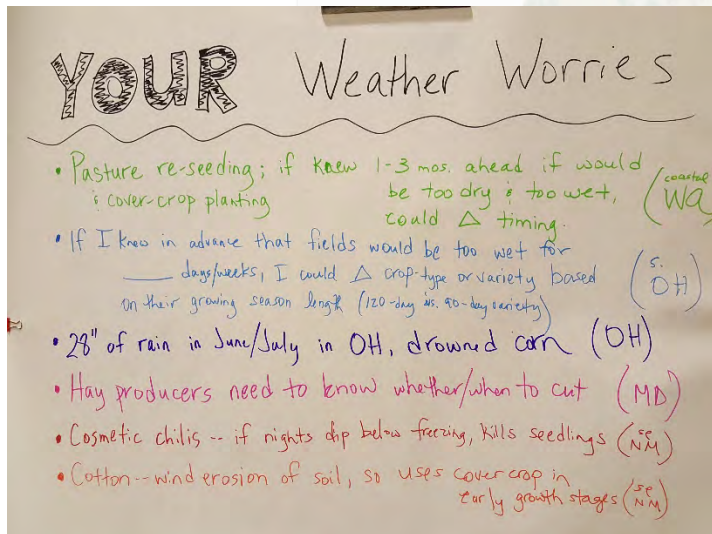 YOUR Weather Worries
• Pasture re-seeding; if knew 1-3 mos. ahead if would
& cover-crop planting be too dry & too wet,
could Δ timing.
(coastal WA)
• If I knew in advance that fields would be too wet for
____ days/weeks, I could Δ crop-type or variety based
on their growing season length (120-day vs. 90-day variety)
(S. OH)
• 28" of rain in June/July in OH, drowned corn (OH)
• Hay producers need to know whether/when to cut (MD)
• Cosmetic chilis -- if nights dip below freezing, kills seedlings (se NM)
• Cotton -- wind erosion of soil, so uses cover crop in
early growth stages (se NM)